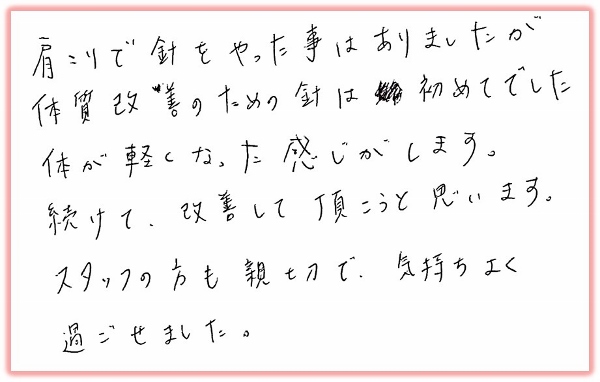 肩こりで針をやった事はありましたが
体質改善のための針は初めてでした
体が軽くなった感じがします。
続けて、改善して頂こうと思います。
スタッフの方も親切で、気持ちよく
過ごせました。